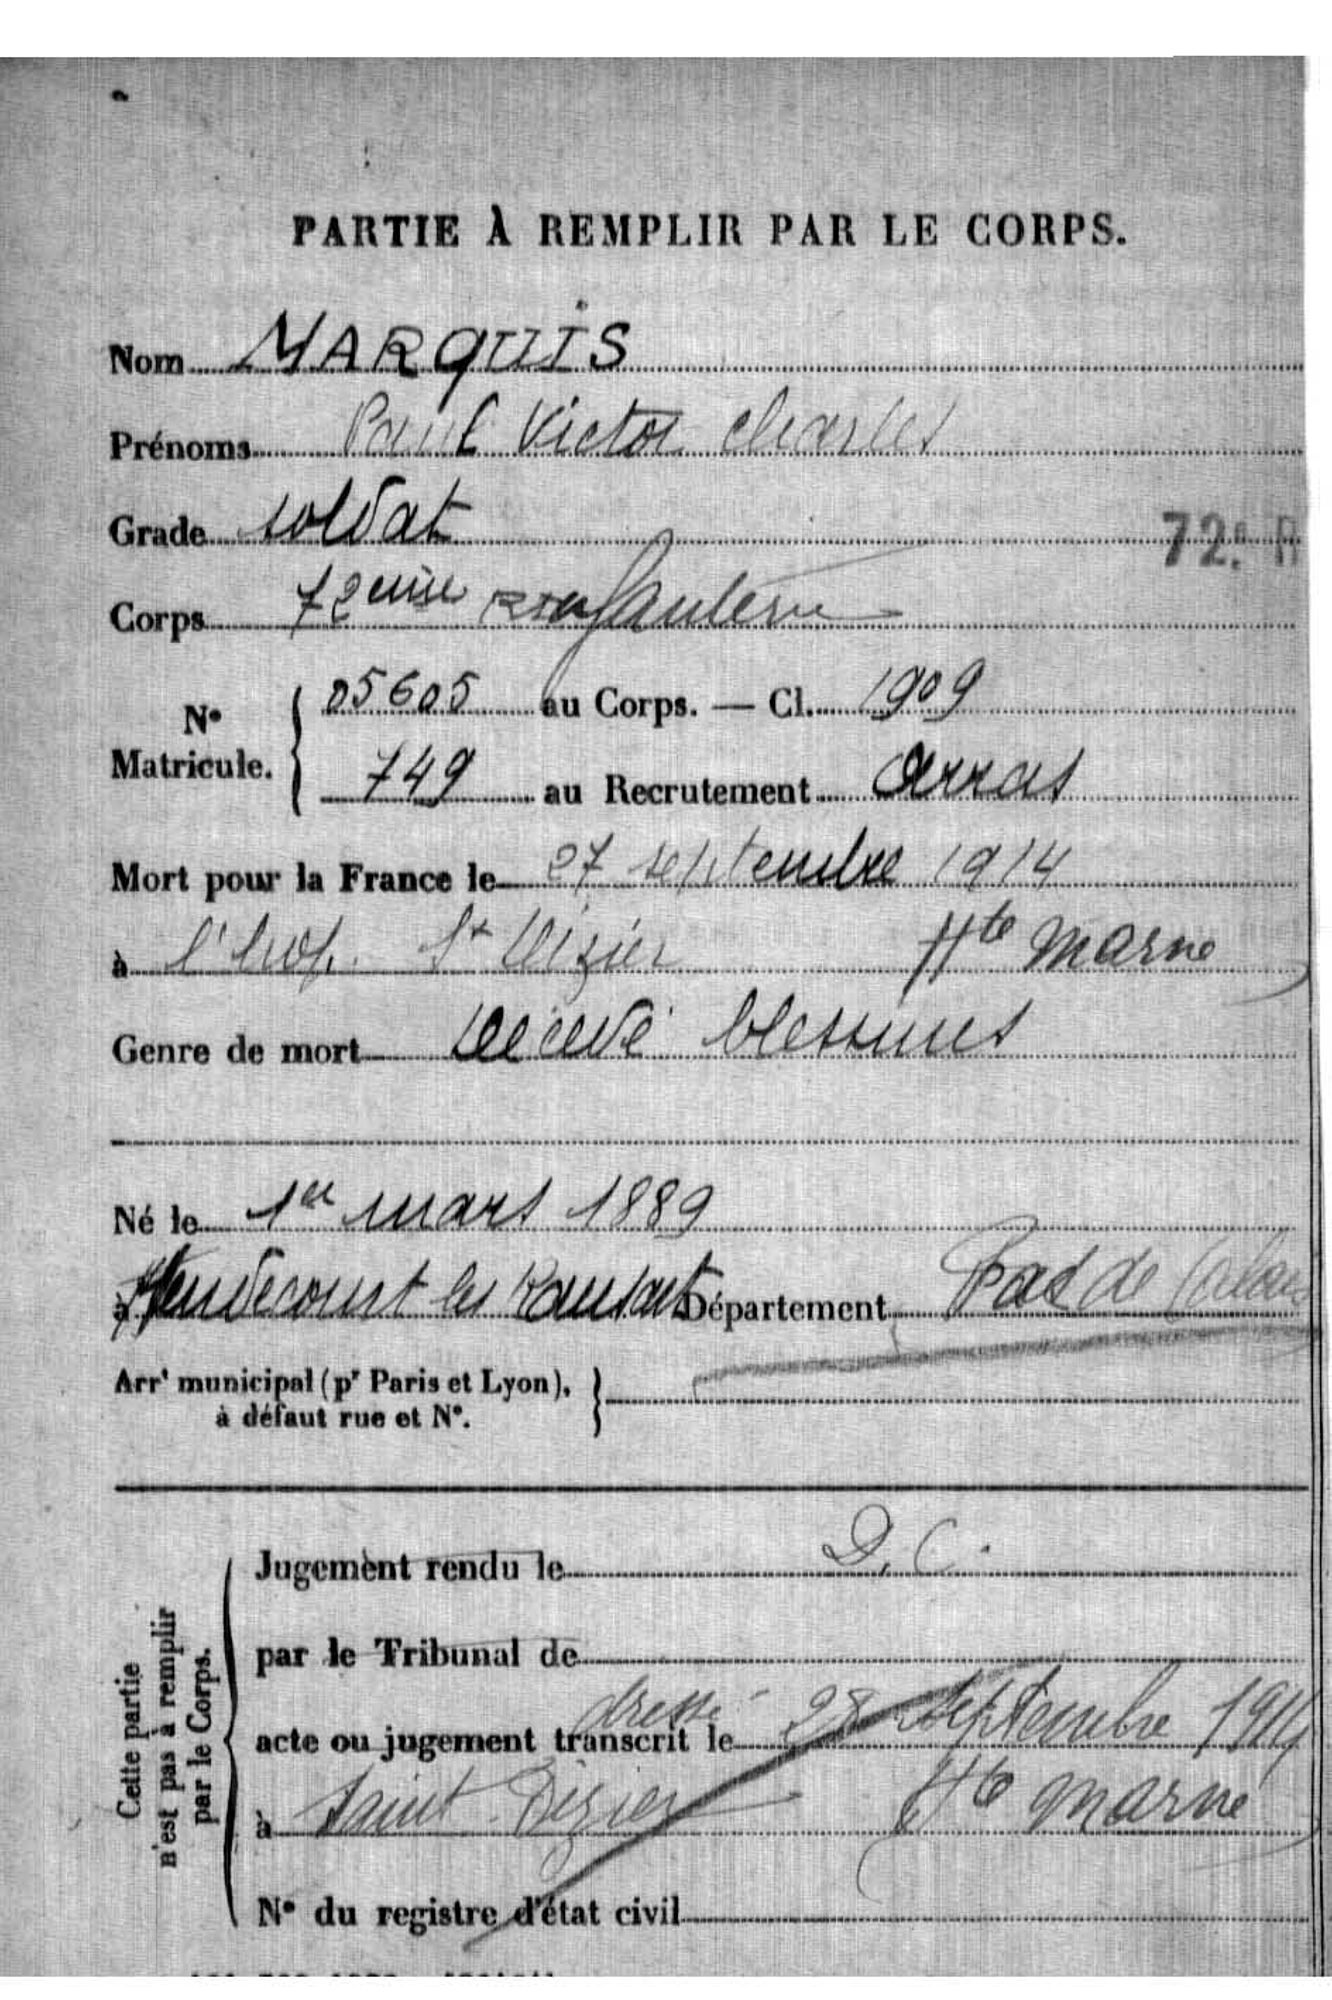 PARTIE À REMPLIR PAR LE CORPS.
Nom MARQUIS
Prénoms Paul Victor Charles
Grade soldat
72e R
Corps 72eme infanterie
N° Matricule. 05605 au Corps. — Cl. 1909
749 au Recrutement Arras
Mort pour la France le 27 septembre 1914
à l'hop. St Dizier Hte Marne
Genre de mort décédé blessures
Né le 1er mars 1889
à Hendecourt les Ransart Département Pas de Calais
Arrt municipal (pr Paris et Lyon),
à défaut rue et N°.
Cette partie
n'est pas à remplir
par le Corps.
Jugement rendu le D. C.
par le Tribunal de
dressé
acte ou jugement transcrit le 28 septembre 1914
à Saint-Dizier Hte Marne
N° du registre d'état civil